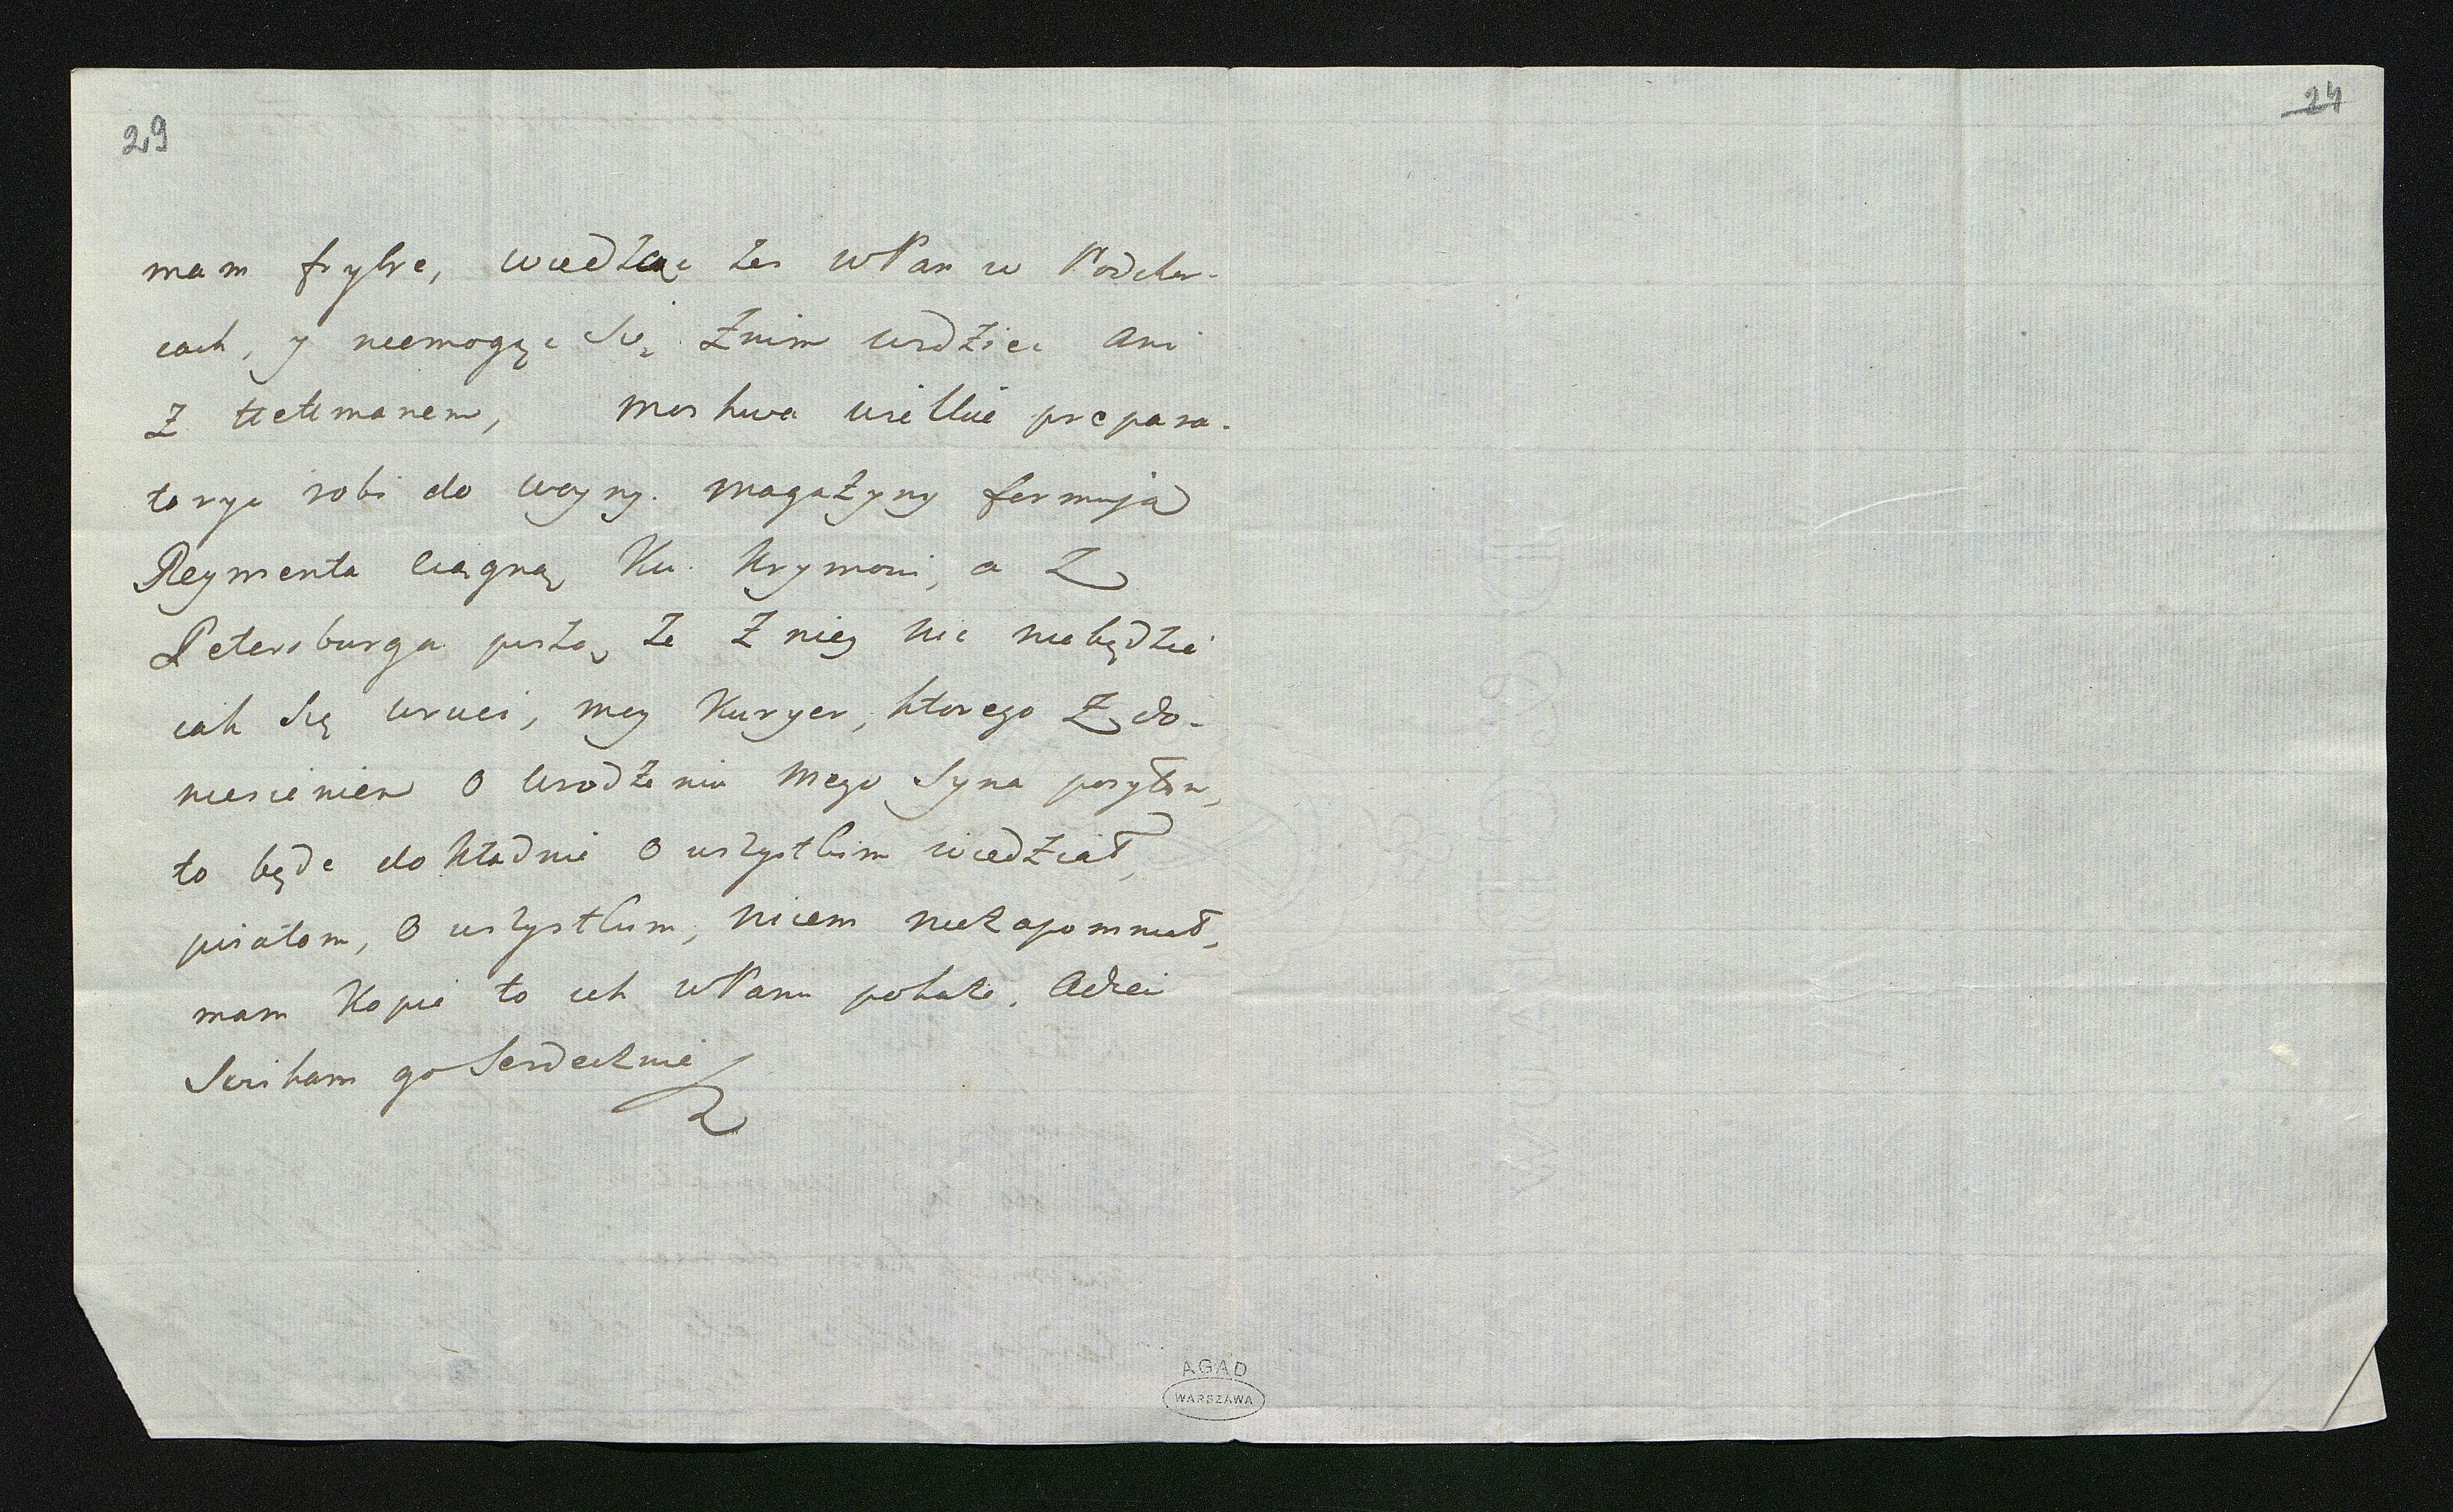 29
24
mam frybre, wiedząc żes wPan w Podhor-
cach, y niemogąc się z nim widziec ani
z Hetmanem, Moskwa wielkie prepara-
torye robi do woyny. magazyny formują
Regimenta ciągną ku Krymowi, a z
Petersburga piszą, że z niey nic niebędzie
iak się wruci, mey Kuryer, ktorego z do-
niesieniem o urodzeniu mego Syna posyłam,
to będe dokładnie o wszystkim wiedział,
pisałem, o wszystkim, niczem niezapomniał,
mam kopie to ich wPanu pokaże. Adieu
Sciskam go Serdecznie
AGAD
WARSZAWA